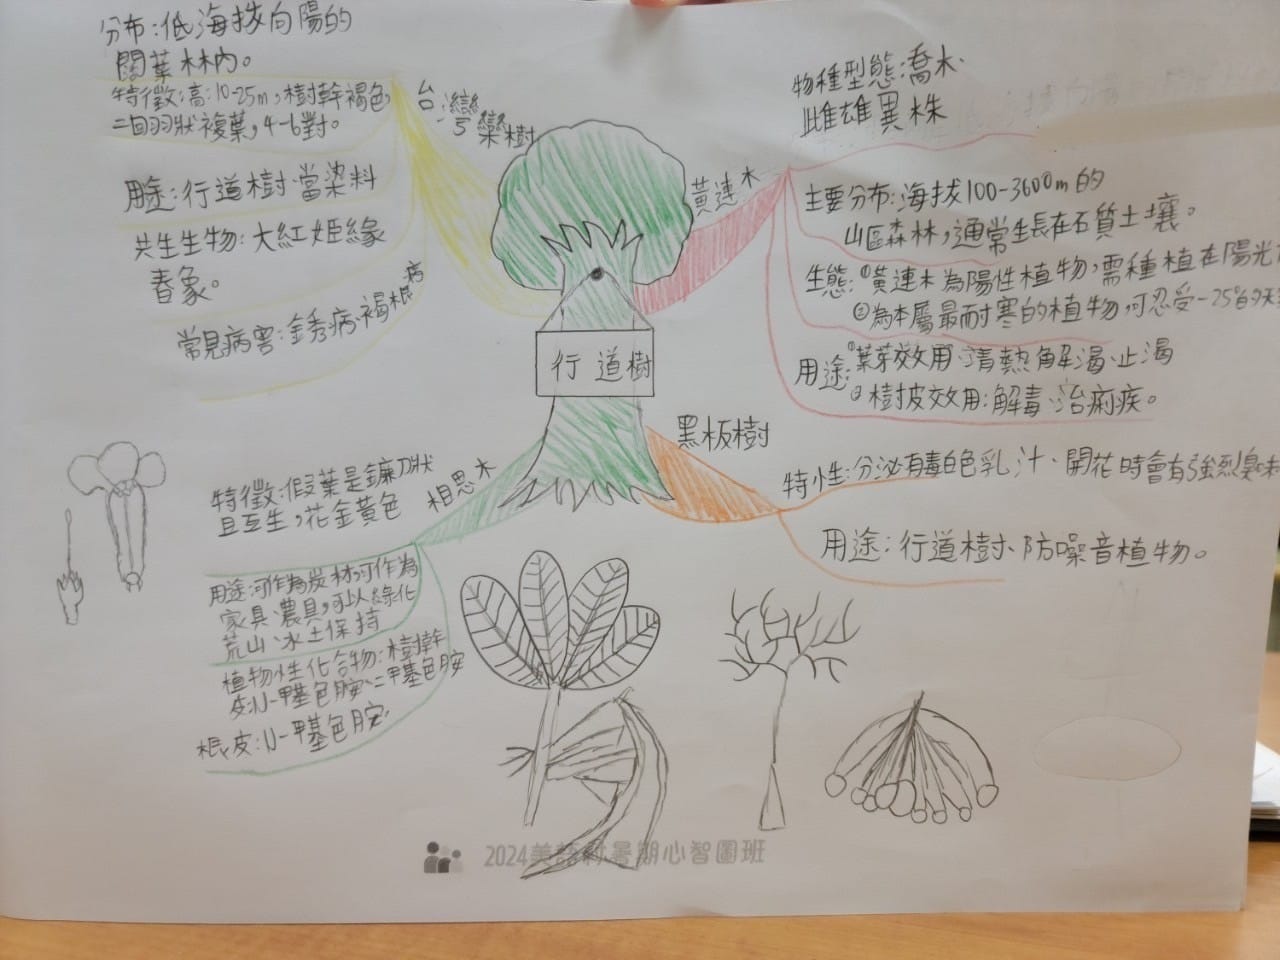 行道樹
台灣欒樹
分布:低海拔向陽的
闊葉林內。
特徵:高:10-25m,樹幹褐色,
二回羽狀複葉,4-6對。
用途:行道樹、當染料
共生生物:大紅姬緣
椿象。
常見病害:銹病、褐根病
黃連木
物種型態:喬木、
雌雄異株
主要分布:海拔100-3600m的
山區森林,通常生長在石質土壤。
生態:①黃連木為陽性植物,需種植在陽光
②為本屬最耐寒的植物,可忍受-25°的天
用途:①葉芽效用:清熱解渴、止渴
②樹皮效用:解毒、治痢疾。
相思木
特徵:假葉是鐮刀狀
且互生,花金黃色
用途:可作為炭材,可作為
家具、農具,可以綠化
荒山、水土保持
植物性化合物:樹幹
皮:N-甲基色胺、二甲基色胺
根皮:N-甲基色胺
黑板樹
特性:分泌有毒白色乳汁、開花時會有強烈臭味
用途:行道樹、防噪音植物。
2024美語村暑期心智圖班